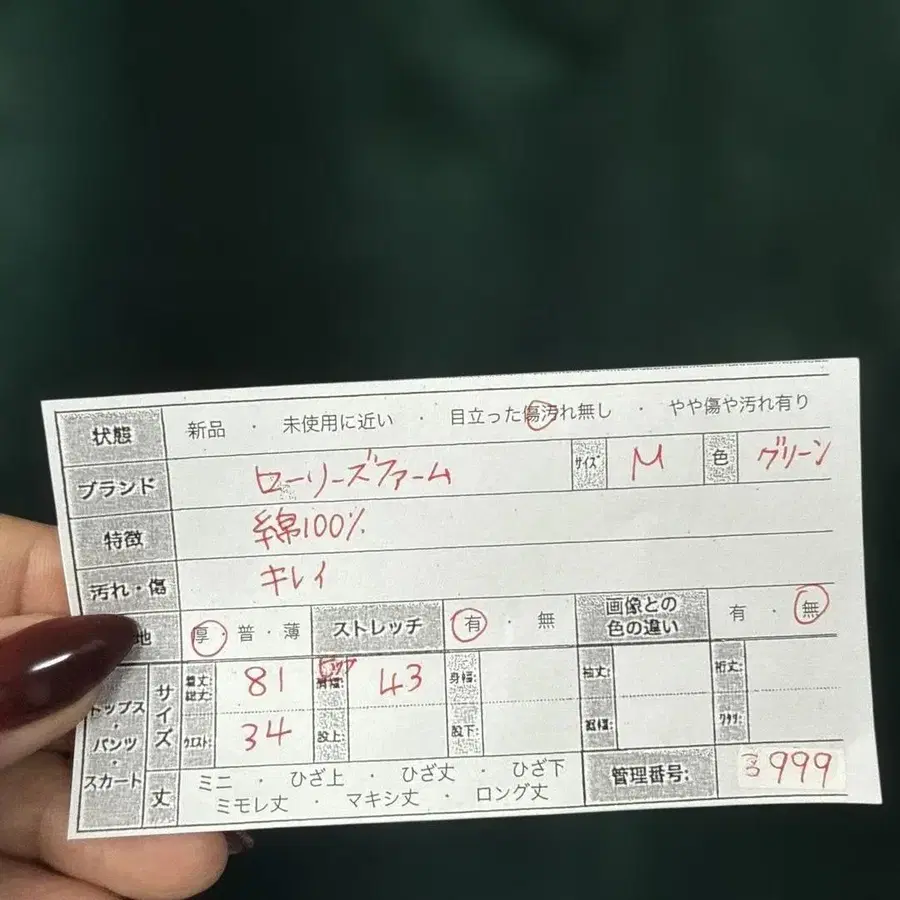 状態 新品 ・ 未使用に近い ・ 目立った傷汚れ無し ・ やや傷や汚れ有り
ブランド ローリーズファーム サイズ M 色 グリーン
特徴 綿100%
汚れ・傷 キレイ
地 厚・普・薄 ストレッチ 有・無 画像との色の違い 有・無
トップス・パンツ・スカート サイズ 着丈: 総丈: 81 ヒップ 肩幅: 43 身幅: 袖丈: 裄丈:
ウエスト: 34 股上: 股下: 裾幅: ワタリ:
丈 ミニ ・ ひざ上 ・ ひざ丈 ・ ひざ下 管理番号: 3999
ミモレ丈 ・ マキシ丈 ・ ロング丈